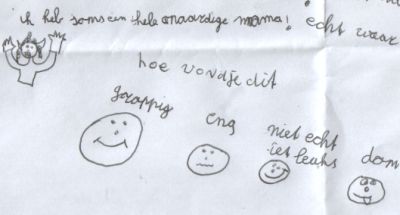 ik heb soms een hele onaardige mama! echt waar
hoe vond je dit
grappig
eng
niet echt
iets leuks
dom